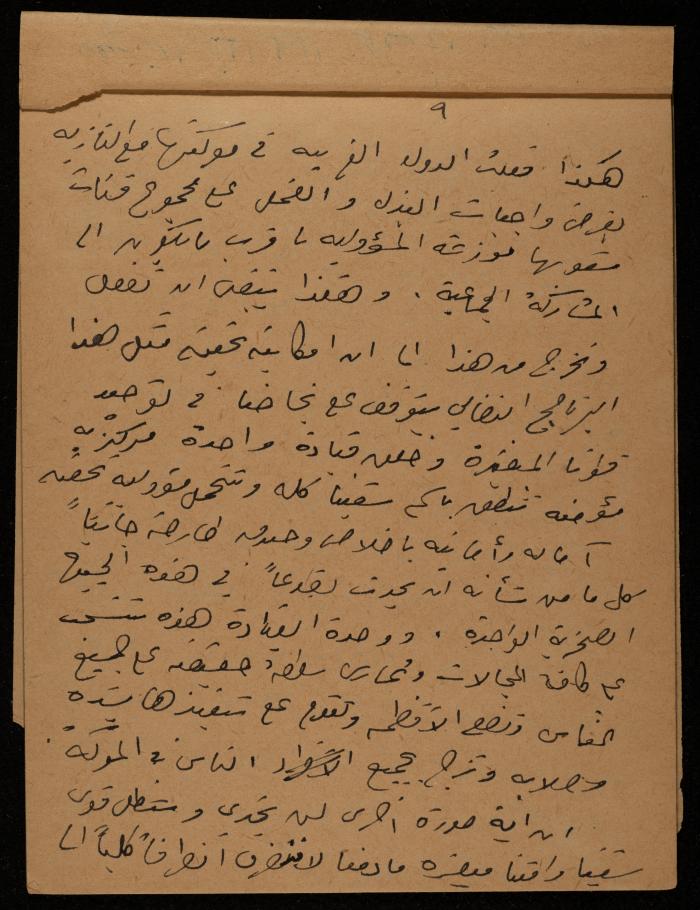 ٩
هكذا فعلت الدول الغربيه في موقفها مع النازيه
بفرض واجبات البذل و العمل على مجموع فئات
شعوبها موزعة المسؤوليه ما قرب ما يكون الى
المشاركة الجماعية . و هكذا ينبغي ان نفعل
ونخرج من هذا الى ان امكانية تحقيق مثل هذا
البرنامج النضالي يتوقف على نجاحنا في توحيد
قوانا المبعثرة وخلق قيادة واحدة مركزيه
مؤمنه تنطق باسم شعبنا كله وتتحمل مسؤولية تحقيق
آماله وأمانيه باخلاص وصدق طارحة جانباً
كل ما من شأنه ان يحدث تصدعاً في هذه الجبهة
العربية الواحدة . ووحدة القيادة هذه تنسحب
على كافة المجالات وتمارس سلطة حقيقيه على جميع
الناس وتضع الأنظمه وتقوم على تنفيذها بشده
وصلابه وتزج بجميع الناس في المعركة .
ان أية صورة أخرى لن تجدي وستظل قوى
شعبنا وامتنا مبعثره ما دمنا لا ننصرف انصرافاً كلياً الى